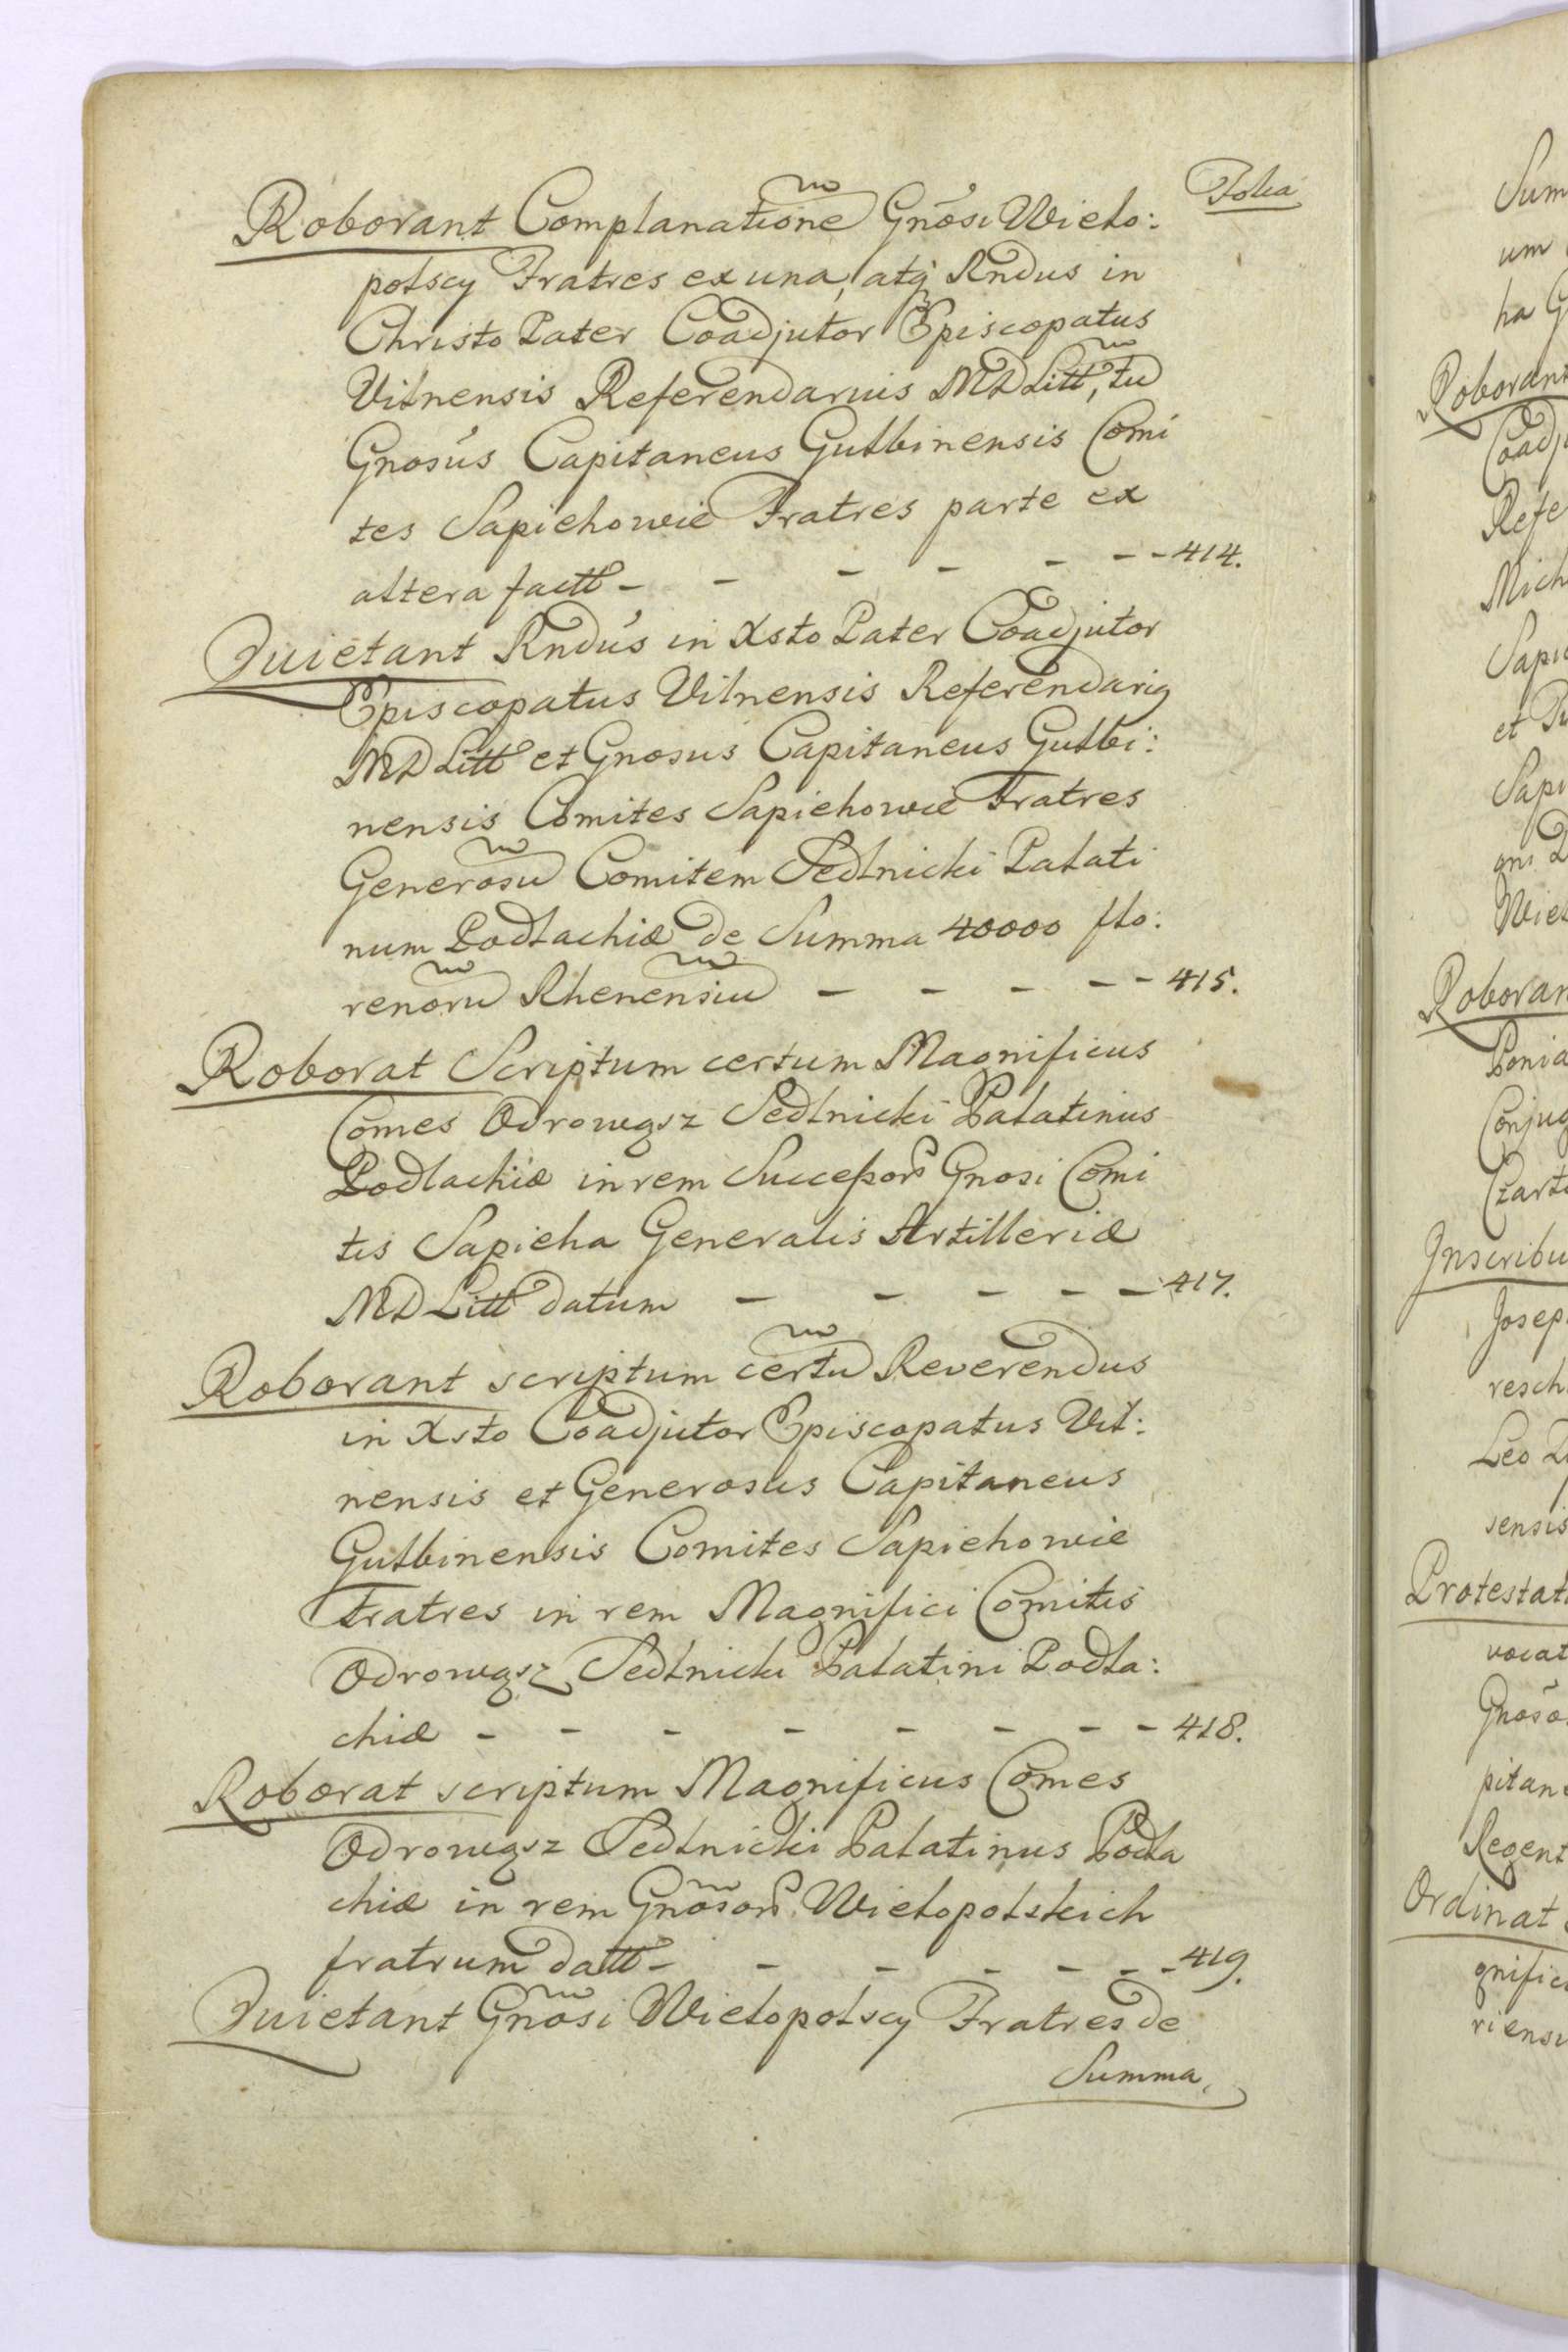 Folia
Roborant Complanatione Gnosi Wielo:
polscy Fratres ex una, atq Rndus in
Christo Pater Coadjutor Episcopatus
Vilnensis Referendarius MDLitt, tu
Gnosus Capitaneus Gulbinensis Comi
tes Sapiehowie Fratres parte ex
altera factt - - - - - - - 414.
Quietant Rndus in Xsto Pater Coadjutor
Episcopatus Vilnensis Referendarig
MDLitt et Gnosus Capitaneus Gulbi:
nensis Comites Sapiehowie Fratres
Generosu Comitem Sedlnicki Palati
num Podlachiæ de Summa 40000 flo:
renoru Rhenensiu - - - - - 415.
Roborat Scriptum certum Magnificus
Comes Odrowąsz Sedlnicki Palatinus
Podlachiæ in rem Successorũ Gnosi Comi
tis Sapieha Generalis Artilleriæ
MDLitt datum - - - - - 417.
Roborant scriptum certu Reverendus
in Xsto Coadjutor Episcopatus Vil:
nensis et Generosus Capitaneus
Gulbinensis Comites Sapiehowie
Fratres in rem Magnifici Comitis
Odrowąsz Sedlnicki Palatini Podla:
chiæ - - - - - - - - 418.
Roborat scriptum Magnificus Comes
Odrowąsz Sedlnicki Palatinus Podla
chiæ in rem Gnosorũ Wielopolskich
fratrum datt - - - - - - - 419.
Quietant Gnosi Wielopolscy Fratres de
Summa
Sum
um
ha G
Roborant
Coadj
Refe
Mich
Sapi
et
Sapi
gni
Wiel
Roboran
Ponia
Conjug
Czart
Inscribu
Josep
resch
Leo
sensis
Protestat
vocat
Gnoso
pitane
Regent
Ordinat
gnific
riensi